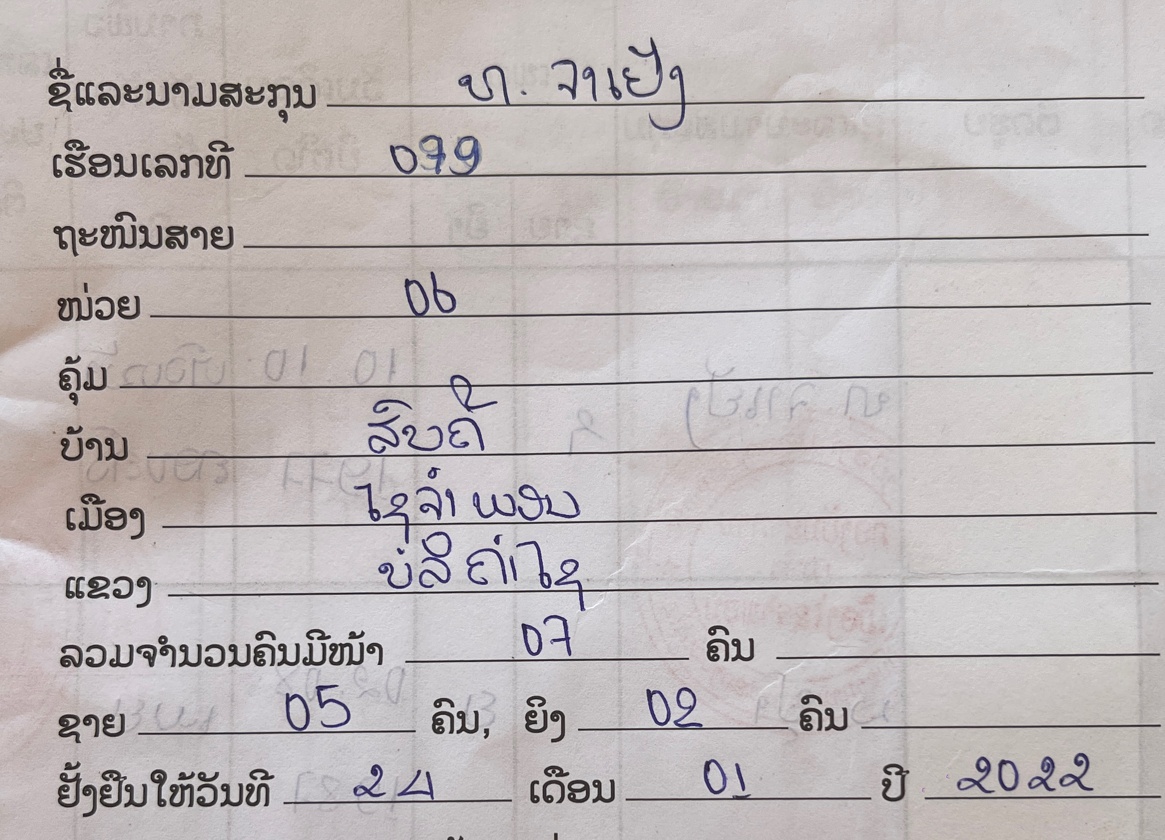 ຊື່ແລະນາມສະກຸນ ທ. ຈາເຢັ່ງ
ເຮືອນເລກທີ 099
ຖະໜົນສາຍ
ໜ່ວຍ 06
ຄຸ້ມ
ບ້ານ ສົບຄີ້
ເມືອງ ໄຊຈຳພອນ
ແຂວງ ບໍລິຄຳໄຊ
ລວມຈຳນວນຄົນມີໜ້າ 07 ຄົນ
ຊາຍ 05 ຄົນ, ຍິງ 02 ຄົນ
ຢັ້ງຢືນໃຫ້ວັນທີ 24 ເດືອນ 01 ປີ 2022